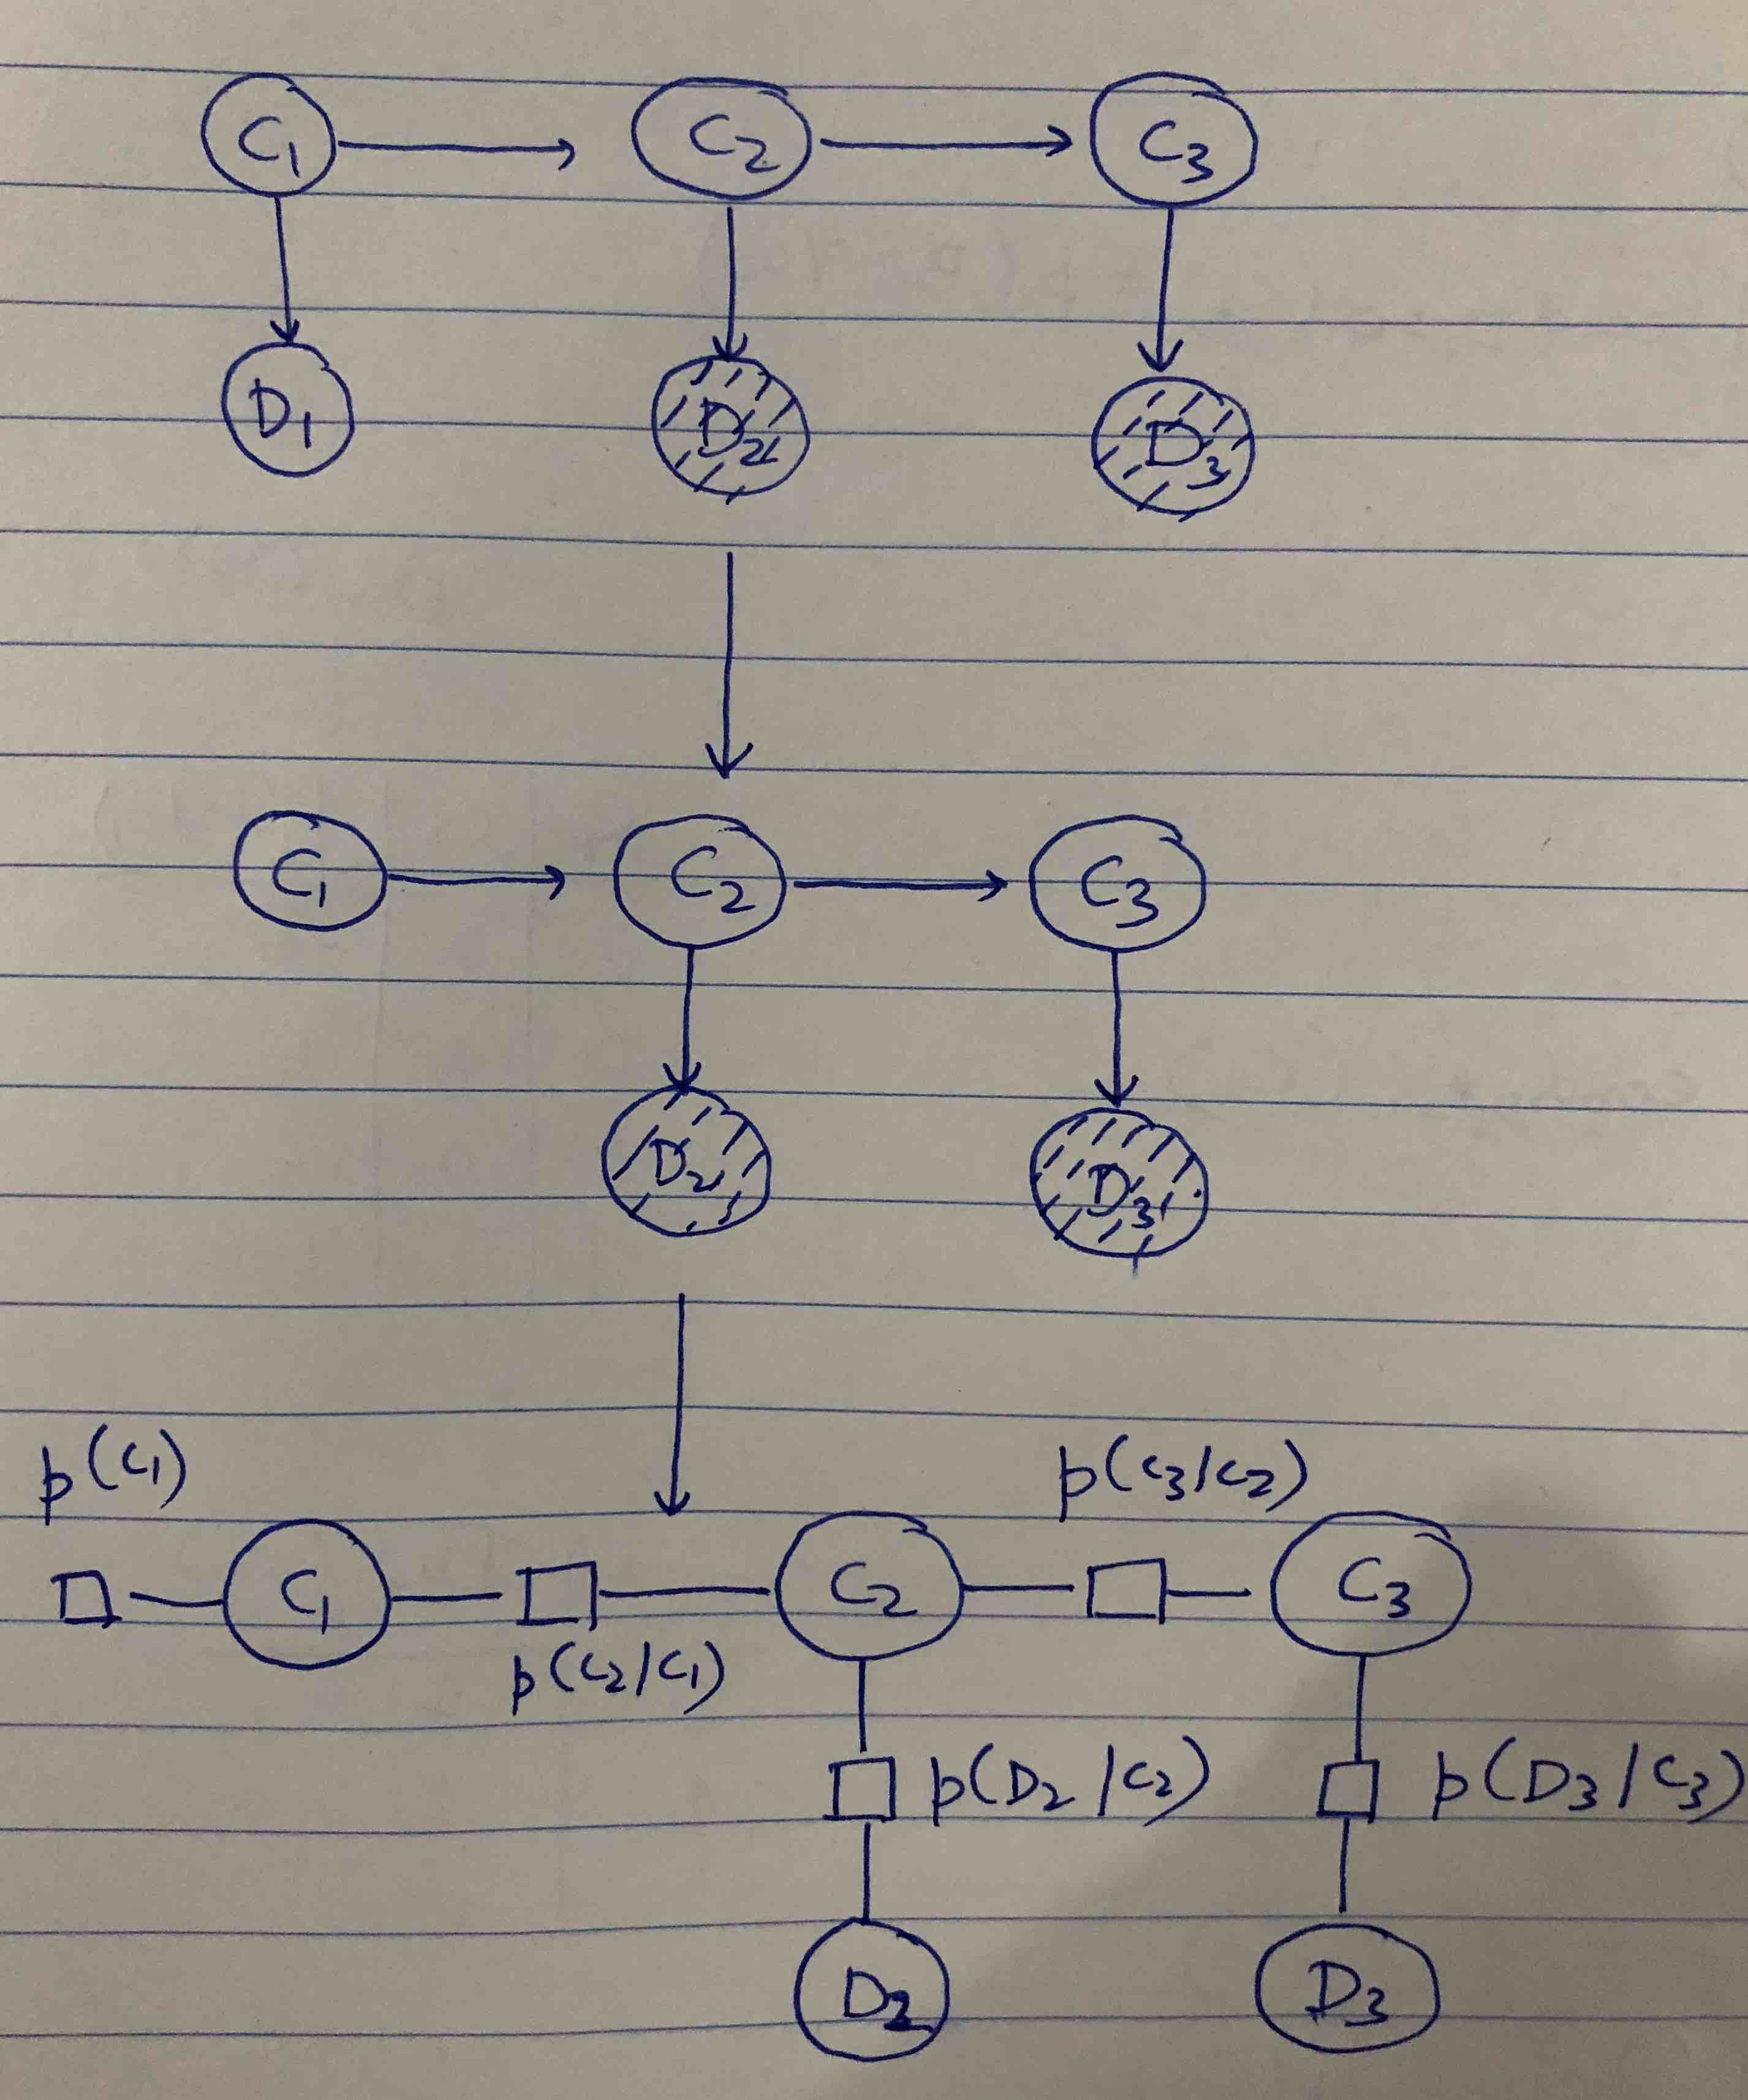 C1 C2 C3
D1 D2 D3
C1 C2 C3
D2 D3
p(C1) p(C3/C2)
C1 C2 C3
p(C2/C1)
p(D2/C2) p(D3/C3)
D2 D3